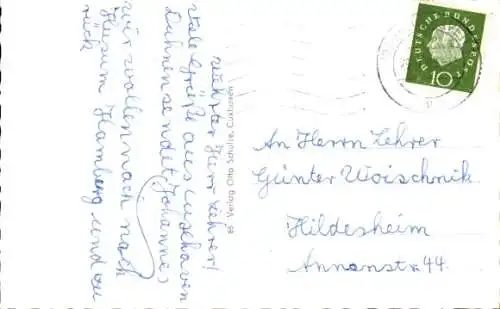 Werter Herr Lehrer!
Viele Grüße aus Cuxhaven
Duhnen sendet Johannes
wir wollen nach noch
Husum Hamburg und zu
rück
68 Verlag Otto Schulze, Cuxhaven
DEUTSCHE BUNDESPOST
10
An Herrn Lehrer
Günter Woischnik
Hildesheim
Annenstr. 44.